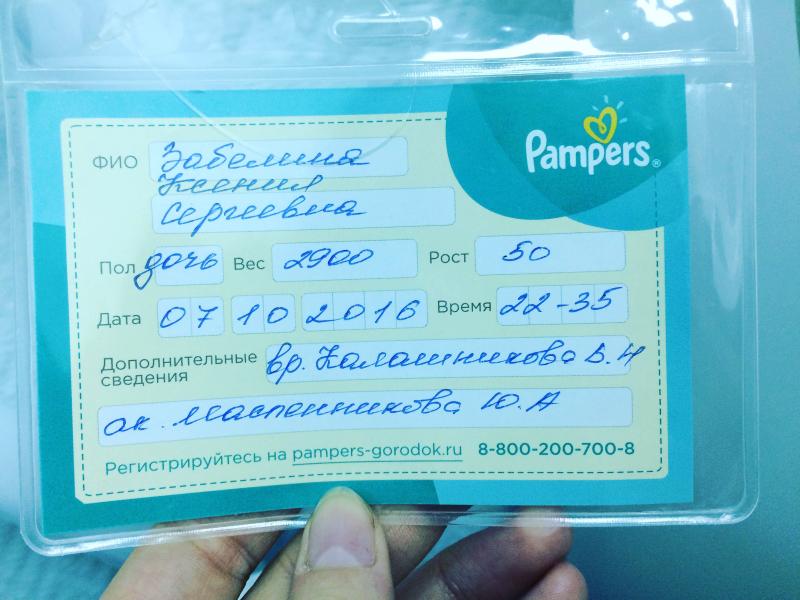 Pampers®
ФИО Забелина
Ксения
Сергиевна
Пол дочь Вес 2900 Рост 50
Дата 07 10 2016 Время 22-35
Дополнительные сведения вр. Калашникова
ак. Масленникова Ю.А
Регистрируйтесь на pampers-gorodok.ru 8-800-200-700-8